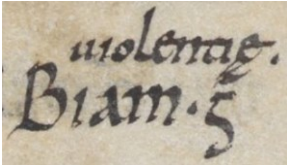 uiolentię.
Biam · g